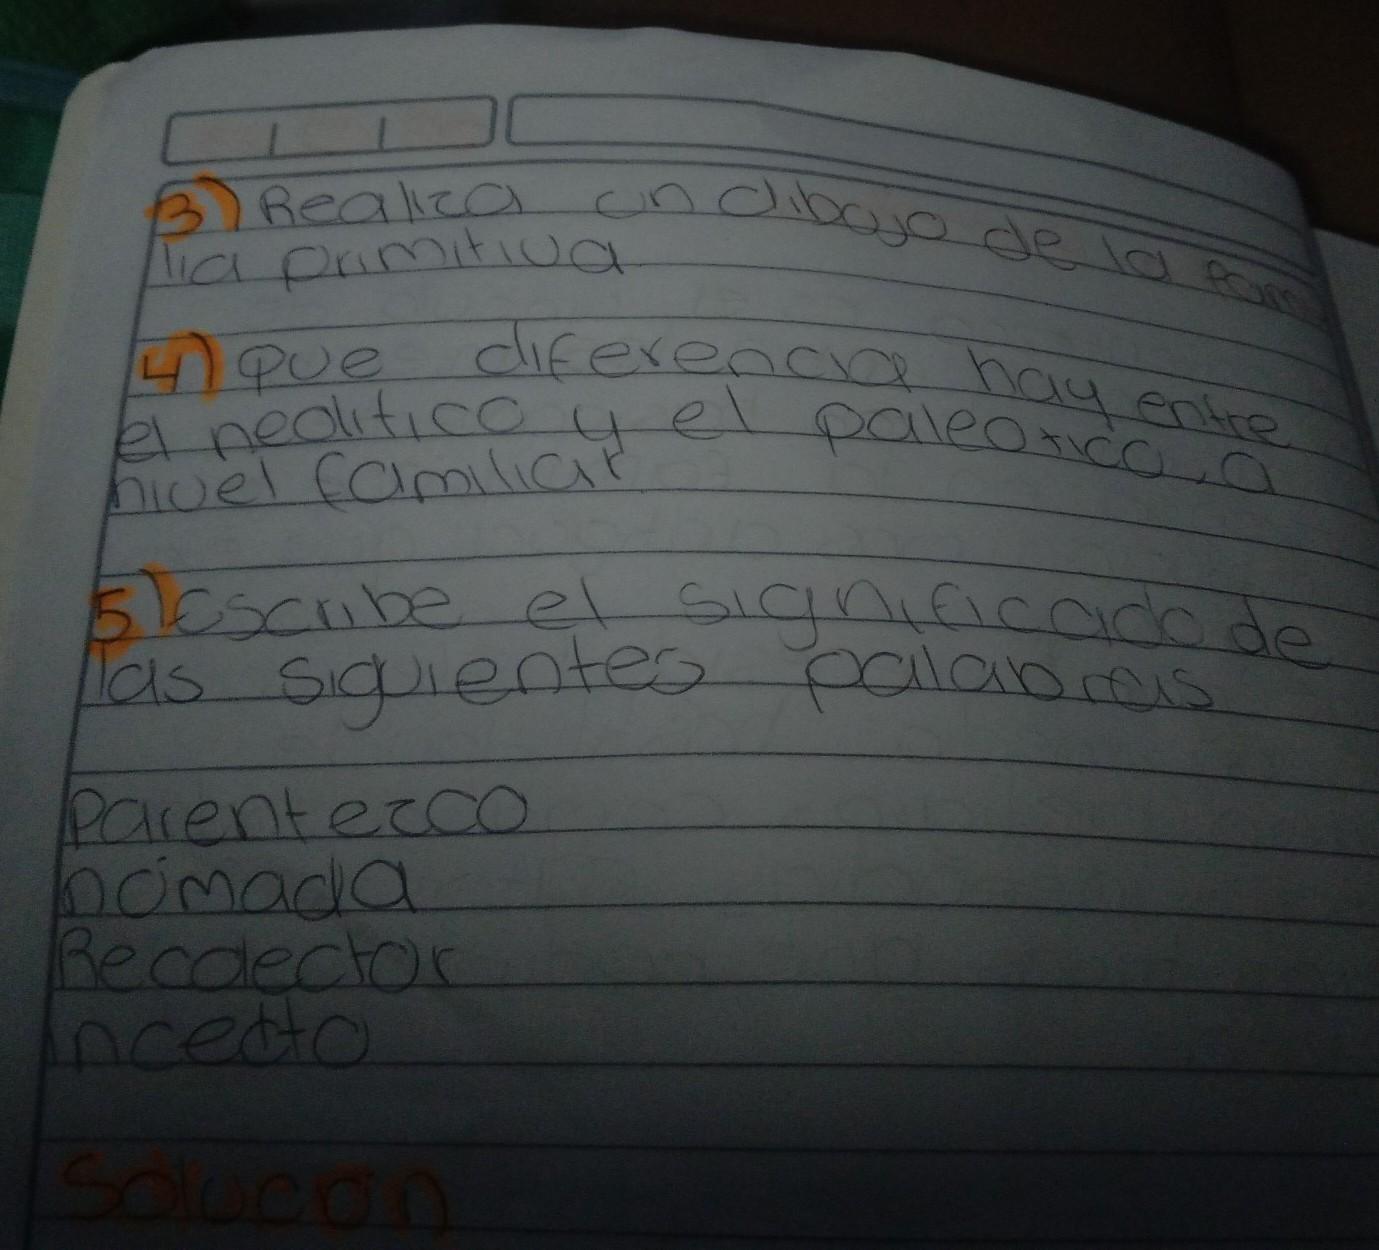 3) Realiza un dibujo de la fami
lia primitiva
4) que diferencia hay entre
el neolitico y el paleoticco, a
nivel familiar
5) escribe el significado de
las siguientes palabras
Parentezco
nómada
Recolector
incetto
Solucon